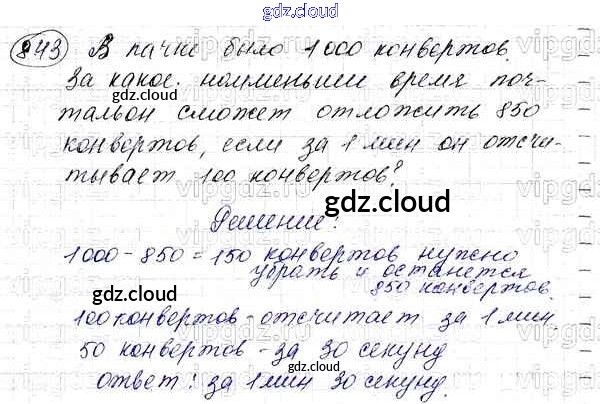 gdz.cloud
843 В пачке было 1000 конвертов.
За какое наименьшее время поч-
тальон сможет отложить 850
конвертов, если за 1 мин он отсчи-
тывает 100 конвертов?
gdz.cloud
Решение:
1000 - 850 = 150 конвертов нужно
убрать и останется
850 конвертов.
gdz.cloud
100 конвертов - отсчитает за 1 мин.
50 конвертов - за 30 секунд
gdz.cloud
ответ: за 1 мин 30 секунд.
gdz.cloud